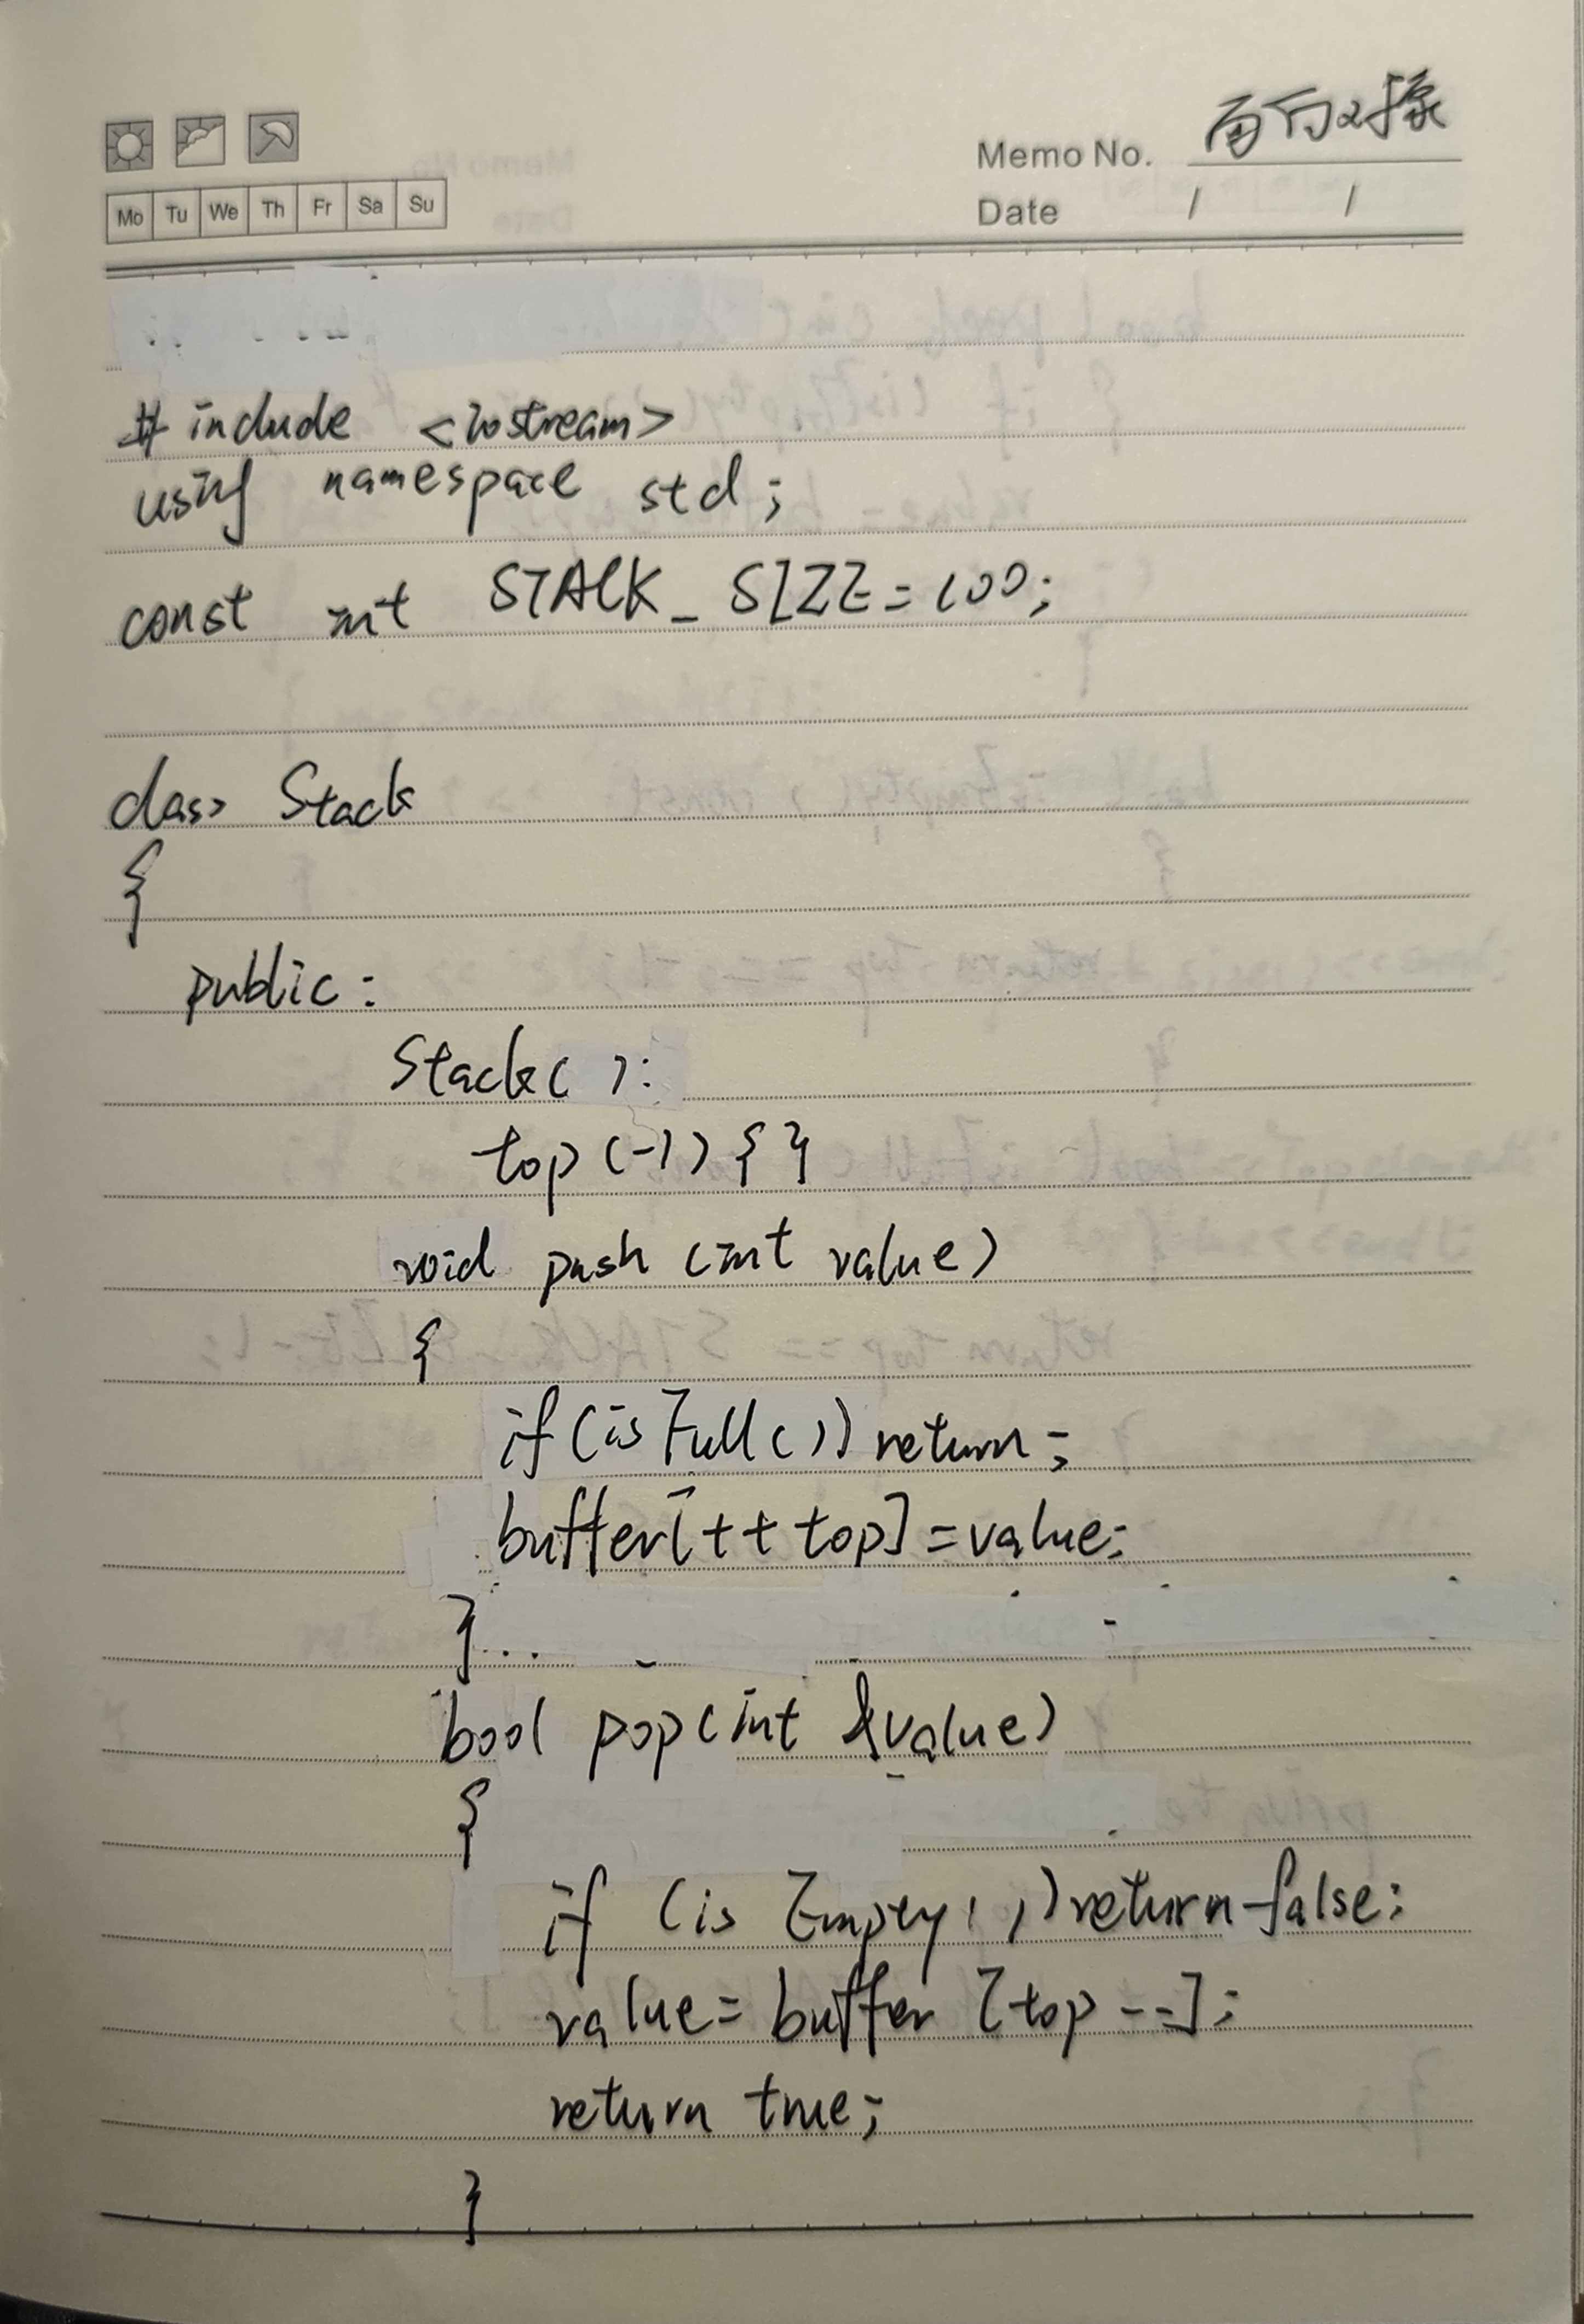 面向对象
Memo No.
Date / /
Mo Tu We Th Fr Sa Su
# include <iostream>
using namespace std;
const int STACK_SIZE=100;
class Stack
{
public:
Stack( ):
top(-1){ }
void push (int value)
{
if(isFull()) return;
buffer[++top]=value;
}
bool pop(int &value)
{
if (isEmpty( ))return false;
value=buffer [top--];
return true;
}